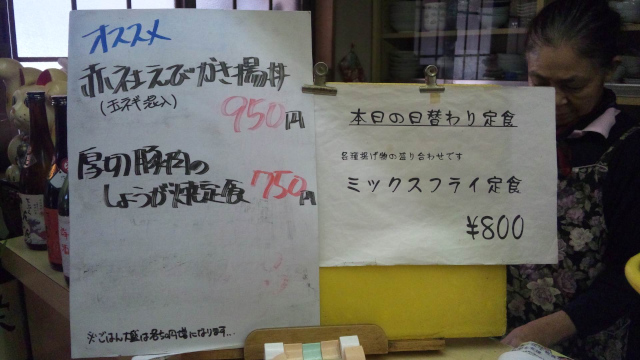 オススメ
赤社えびかき揚丼
(玉ネギ混入)
950円
厚切豚肉の
しょうが焼定食 750円
※ごはん大盛は百円増になります…
本日の日替わり定食
各種揚げ物の盛り合わせです
ミックスフライ定食
¥800